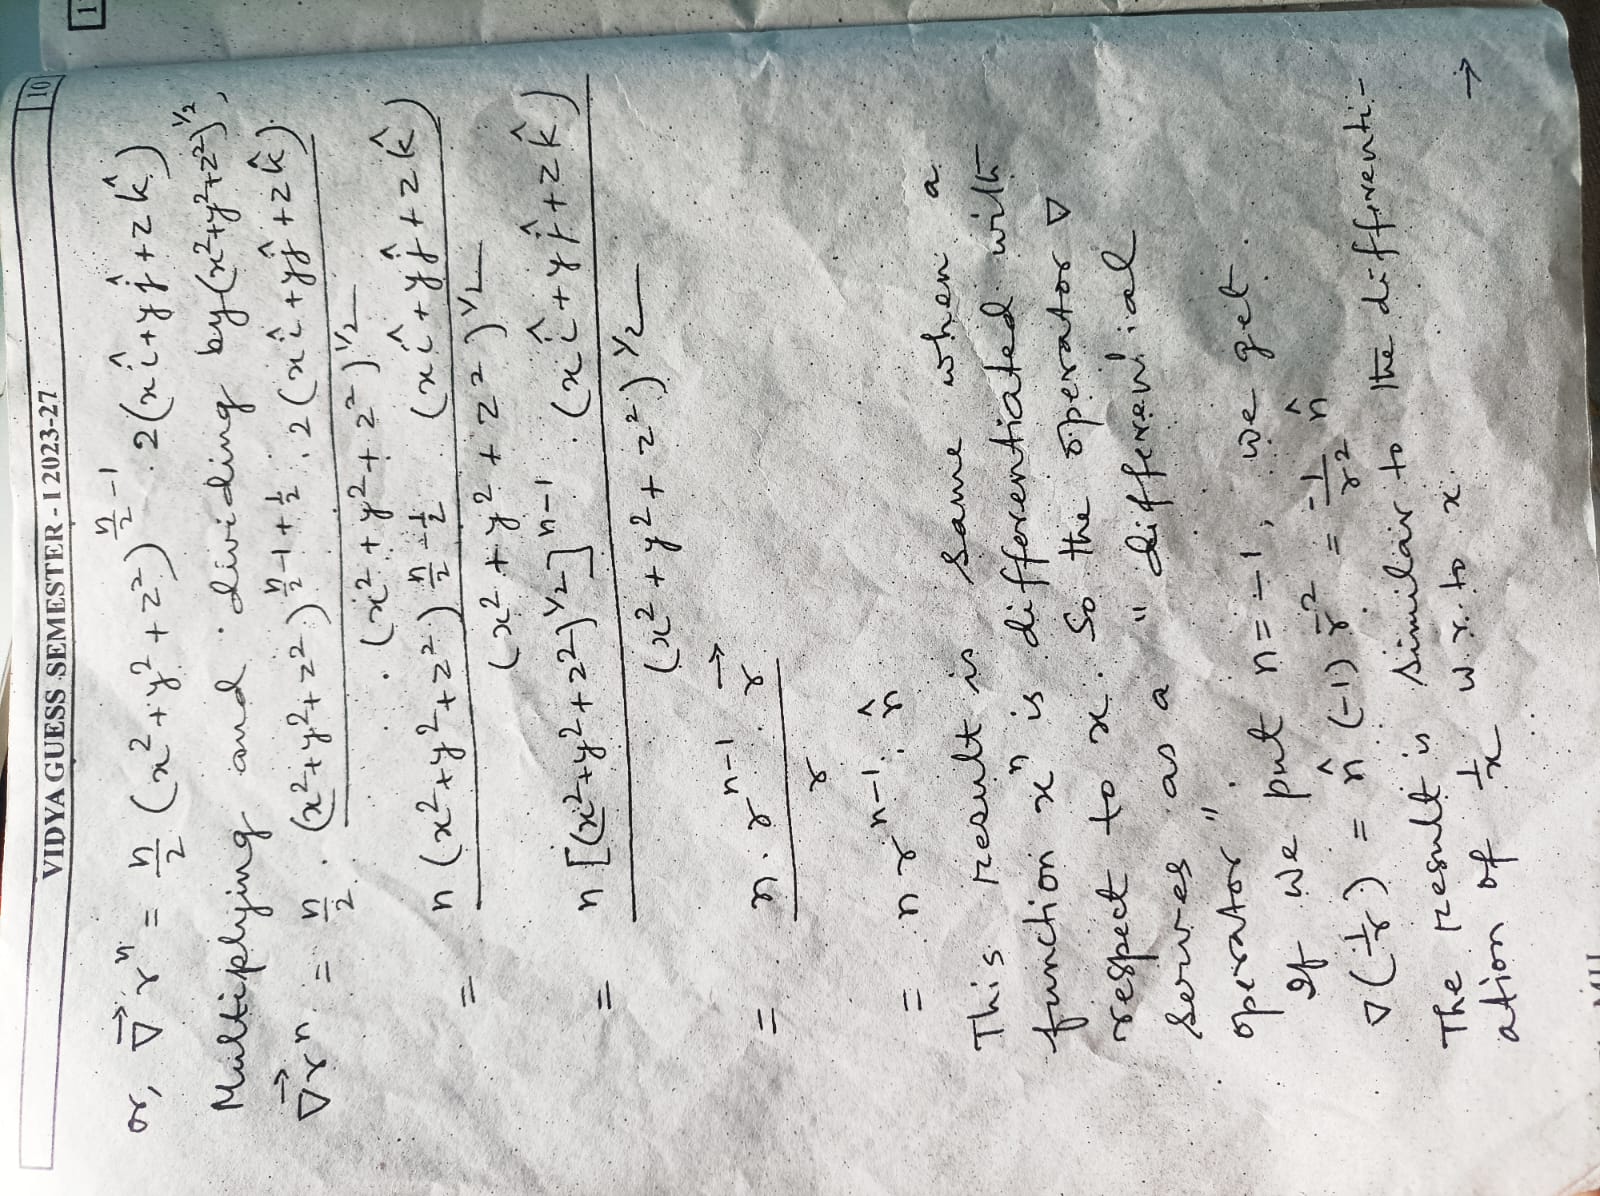 VIDYA GUESS SEMESTER - I 2023-27 10
or, ∇⃗rⁿ = n/2 (x²+y²+z²)^(n/2 - 1) . 2(xî+yĵ+zk̂)
Multiplying and dividing by (x²+y²+z²)^1/2,
∇⃗rⁿ = n/2 . (x²+y²+z²)^(n/2 - 1 + 1/2) . 2(xî+yĵ+zk̂) / (x²+y²+z²)^1/2
= n(x²+y²+z²)^(n/2 - 1/2) (xî+yĵ+zk̂) / (x²+y²+z²)^1/2
= n[(x²+y²+z²)^1/2]^(n-1) . (xî+yĵ+zk̂) / (x²+y²+z²)^1/2
= n . r^(n-1) r⃗ / r
= n r^(n-1) . n̂
This result is same when a
function xⁿ is differentiated with
respect to x. So the operator ∇
serves as a "differential
operator".
If we put n = -1, we get.
∇(1/r) = n̂ (-1) r^-2 = -1/r² n̂
The result is similar to the differenti-
ation of 1/x w.r. to x. →
1